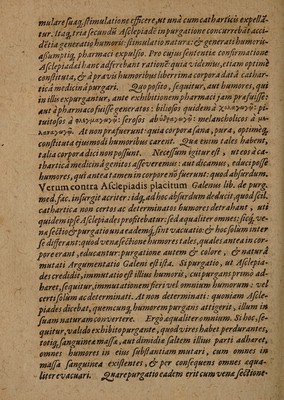 mulare suaq́; stimulatione efficere, ut unà cum catharticis expellātur.
Itaq́; tria secundū Asclepiadē in purgatione concurrebāt: accidētia generatio humoris: stimulatio naturæ: & generati humoris assumptiq́;
pharmaci expulsio. Pro cuius sententiæ confirmatione
Asclepiadæi hanc adferebant rationē: quia videmus, etiam optimè
constituta, & à pravis humoribus liberrima corpora datā catharticā
medicinā purgari. Quo posito, sequitur, aut humores, qui
in illis expurgantur, ante exhibitionem pharmaci jam præfuisse:
aut à pharmaco fuisse generatos: biliosos quidem à χολαγωγῷ: pituitosos
à φλεγμαγωγῷ: serosos ab ὑδραγωγῷ: melancholicos à μελαναγωγῷ.
At non præfuerunt: quia corpora sana, pura, optimeq́;
constituta ejusmodi humoribus carent. Quæ enim tales habent,
talia corpora dici non possunt. Necessum igitur est, ut eos à catharticâ
medicinâ genitos asseveremus: aut dicamus, educi posse
humores, qui antea tamen in corpore nō fuerunt: quod absurdum.
Verum contra Asclepiadis placitum Galenus lib. de purg.
med. fac. insurgit acriter: idq́; ad hoc absurdum deducit, quod scil.
cathartica non certos ac determinatos humores detrahant, uti
quidem ipse Asclepiades profitebatur: sed æqualiter omnes: sicq́; venæ
sectio & purgatio una eademq́; sint vacuatio: & hoc solum inter
se differant: quod venæ sectione humores tales, quales antea in corpore
erant, educantur: purgatione autem & colore, & naturâ
mutati. Argumentatio Galeni est ista. Si purgatio, ut Asclepiades
credidit, immutatio est illius humoris, cui purgans primò adhæret,
sequitur, immutationem fieri vel omnium humorum: vel
certi solum ac determinati. At non determinati: quoniam Asclepiades
dicebat, quemcunq́; humorem purgans attigerit, illum in
suam naturam convertere. Ergò æqualiter omnium. Si hoc, sequitur,
valido exhibito purgante, quod vires habet perdurantes,
totiq́; sanguineæ massæ, aut dimidiæ saltem illius parti adhæret,
omnes humores in ejus substantiam mutari, cum omnes in
massa sanguinea existentes, & per consequens omnes æqualiter
evacuari. Quare purgatio eadem erit cum venæ sectione.